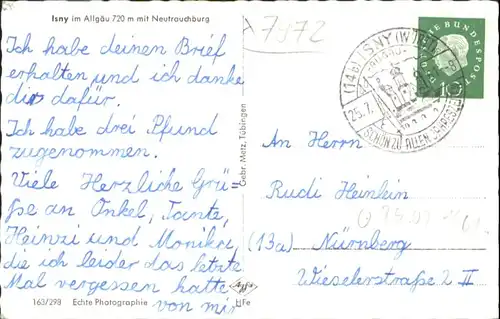 Isny im Allgäu 720 m mit Neutrauchburg
Ich habe deinen Brief
erhalten und ich danke
dir dafür.
Ich habe drei Pfund
zugenommen.
Viele Herzliche Grü-
ße an Onkel, Tante,
Heinzi und Monika,
die ich leider das letzte
Mal vergessen hatte
von mir
163/298 Echte Photographie HFe
Gebr. Metz, Tübingen
A 7972
(14b) ISNY (WÜRTT)
25.7.
SCHÖN ZU ALLEN JAHRESZEITEN
DEUTSCHE BUNDESPOST
10
An Herrn
Rudi Heinlein
(13a) Nürnberg
Wieselerstraße 2 II